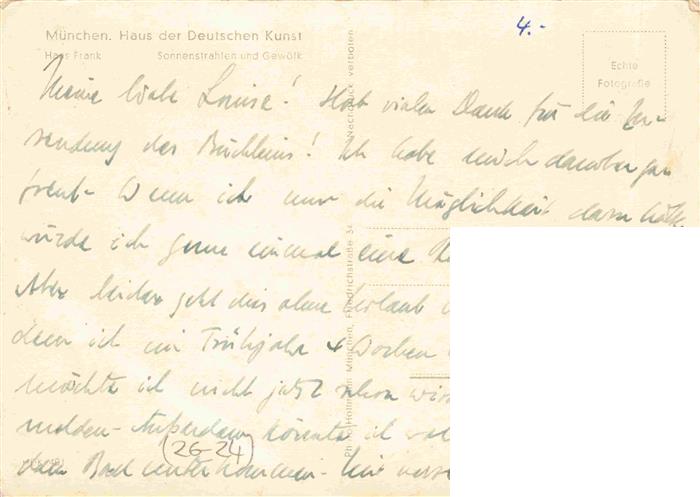 4.-
München. Haus der Deutschen Kunst
Hans Frank Sonnenstrahlen und Gewölk
Echte
Fotografie
Nachdruck verboten
Meine liebe Louise! Hab vielen Dank für die Zu-
sendung des Büchleins! Ich habe mich darüber ge-
freut- Wenn ich nur die Möglichkeit dazu hätte
würde ich gerne einmal eine
Aber leider geht dies ohne Urlaub
denn ich im Frühjahr 4 Wochen
möchte ich nicht jetzt schon wied
melden- Außerdem könnte ich
dem Bad unterkommen-
(26-24)
Photo-Hoffmann, München, Friedrichstraße 34